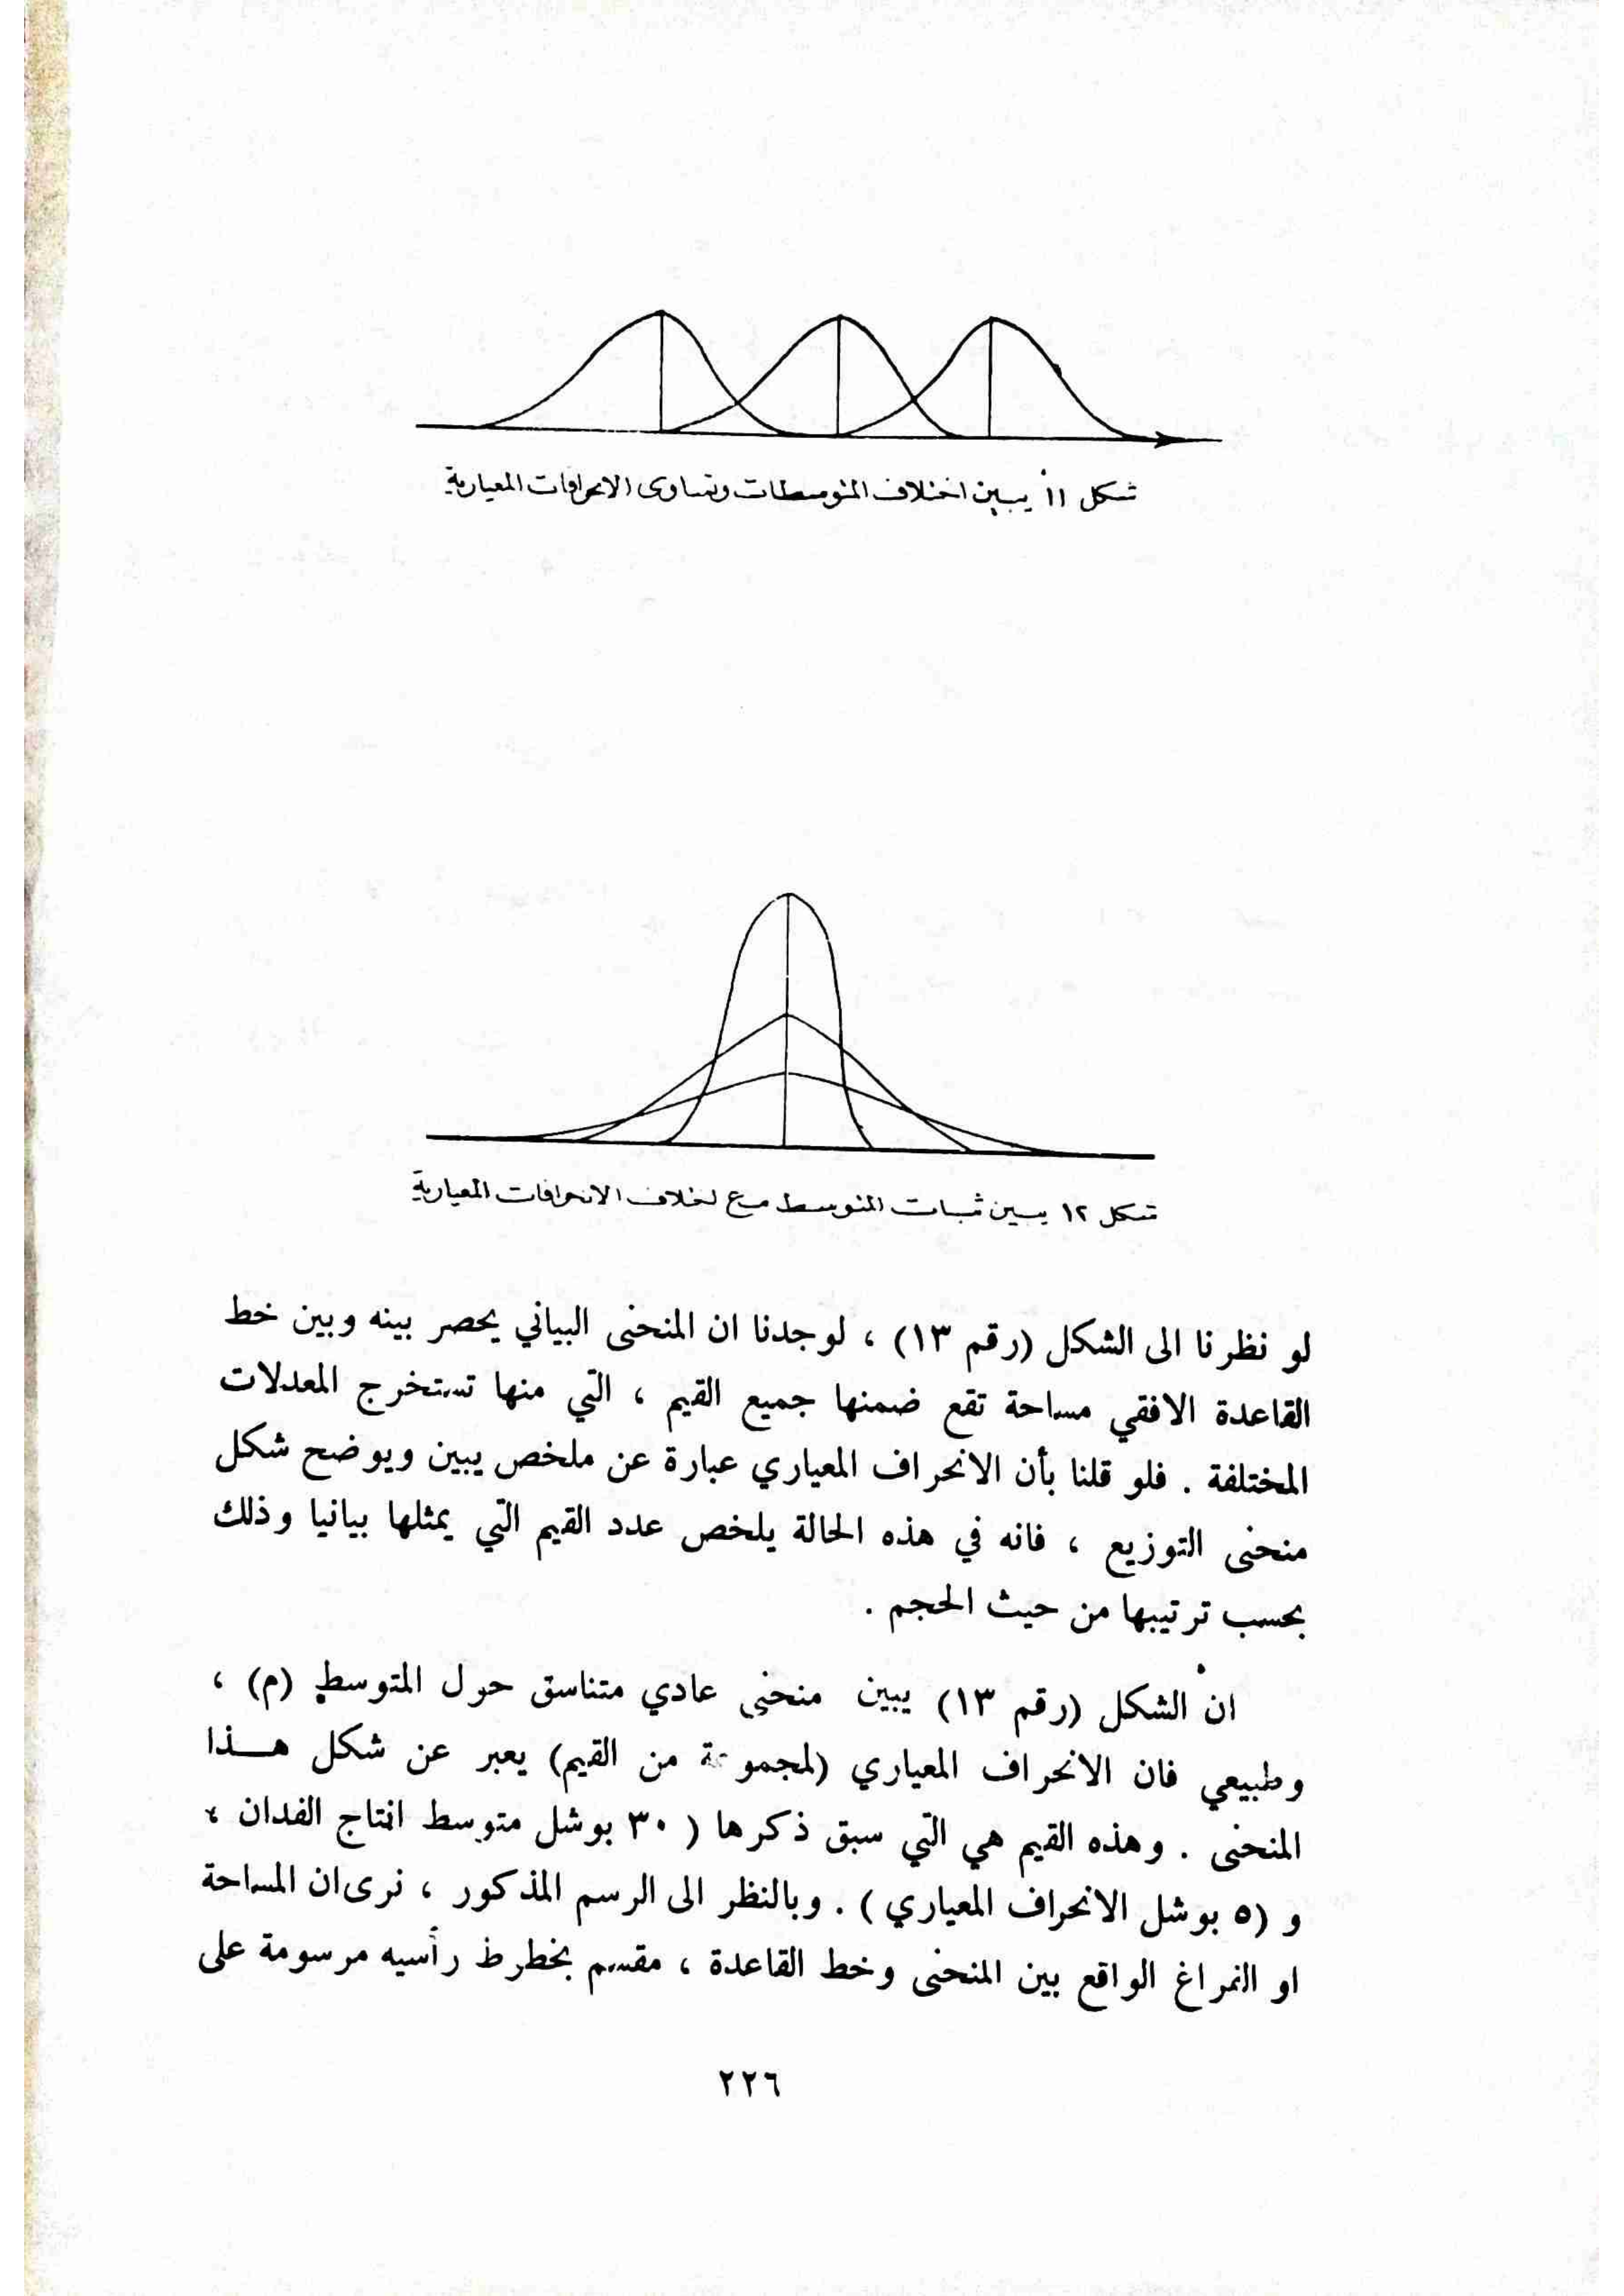 شكل ١١ يبين اختلاف المتوسطات وتساوى الانحرافات المعيارية
شكل ١٢ يبين ثبات المتوسط مع اختلاف الانحرافات المعيارية
لو نظرنا الى الشكل (رقم ١٣) ، لوجدنا ان المنحنى البياني يحصر بينه وبين خط
القاعدة الافقي مساحة تقع ضمنها جميع القيم ، التي منها تستخرج المعدلات
المختلفة . فلو قلنا بأن الانحراف المعياري عبارة عن ملخص يبين ويوضح شكل
منحنى التوزيع ، فانه في هذه الحالة يلخص عدد القيم التي يمثلها بيانيا وذلك
بحسب ترتيبها من حيث الحجم .
ان الشكل (رقم ١٣) يبين منحنى عادي متناسق حول المتوسط (م) ،
وطبيعي فان الانحراف المعياري (لمجموعة من القيم) يعبر عن شكل هــذا
المنحنى . وهذه القيم هي التي سبق ذكرها ( ٣٠ بوشل متوسط انتاج الفدان ،
و (٥ بوشل الانحراف المعياري ) . وبالنظر الى الرسم المذكور ، نرى ان المساحة
او الفراغ الواقع بين المنحنى وخط القاعدة ، مقسم بخطوط رأسيه مرسومة على
٢٢٦